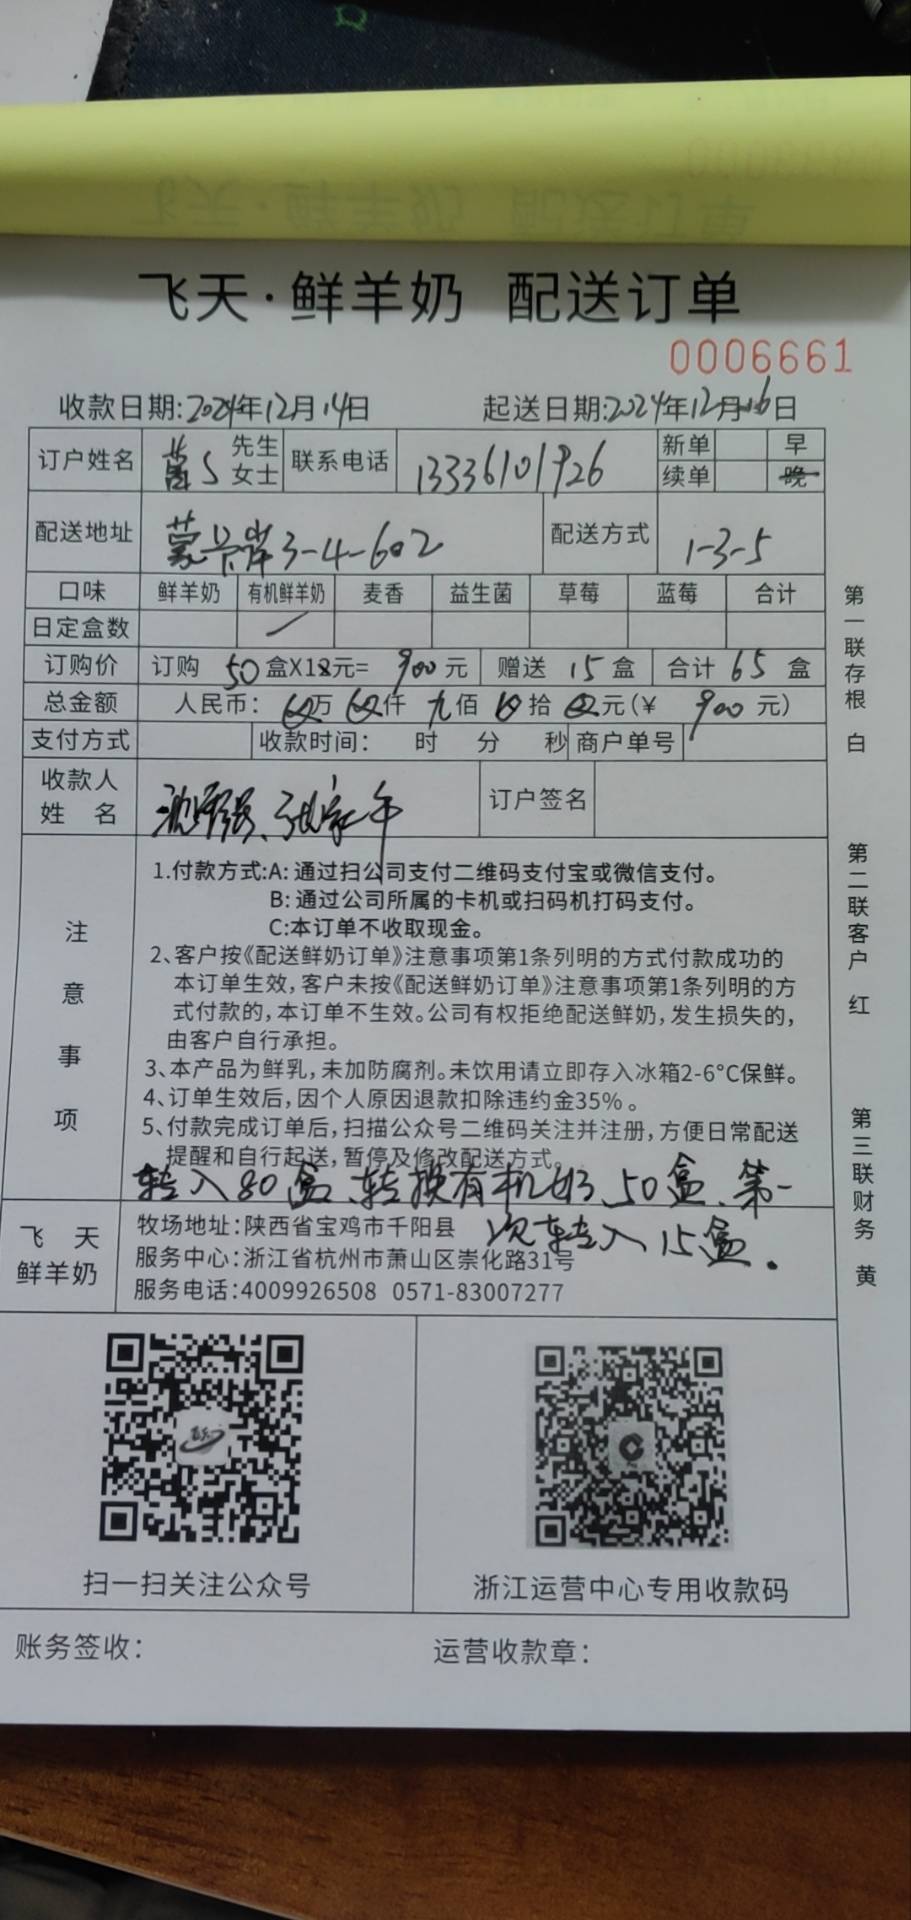 飞天·鲜羊奶 配送订单
0006661
收款日期:2024年12月14日 起送日期:2024年12月16日
订户姓名 先生 女士 联系电话 13336101926 新单 续单 早 晚
配送地址 蒙卡岸3-4-602 配送方式 1-3-5
口味 鲜羊奶 有机鲜羊奶 麦香 益生菌 草莓 蓝莓 合计
日定盒数
订购价 订购 50 盒X18元= 900 元 赠送 15 盒 合计 65 盒
总金额 人民币: 万 仟 九佰 拾 元(¥ 900 元)
支付方式 收款时间: 时 分 秒 商户单号
收款人
姓 名
订户签名
注意事项
1.付款方式:A:通过扫公司支付二维码支付宝或微信支付。
B:通过公司所属的卡机或扫码机打码支付。
C:本订单不收取现金。
2、客户按《配送鲜奶订单》注意事项第1条列明的方式付款成功的
本订单生效,客户未按《配送鲜奶订单》注意事项第1条列明的方
式付款的,本订单不生效。公司有权拒绝配送鲜奶,发生损失的,
由客户自行承担。
3、本产品为鲜乳,未加防腐剂。未饮用请立即存入冰箱2-6°C保鲜。
4、订单生效后,因个人原因退款扣除违约金35%。
5、付款完成订单后,扫描公众号二维码关注并注册,方便日常配送
提醒和自行起送,暂停及修改配送方式。
转入80盒、转换有机奶、50盒、第一
次转入15盒.
飞 天
鲜羊奶
牧场地址:陕西省宝鸡市千阳县
服务中心:浙江省杭州市萧山区崇化路31号
服务电话:4009926508 0571-83007277
扫一扫关注公众号 浙江运营中心专用收款码
账务签收: 运营收款章:
第一联存根 白
第二联客户 红
第三联财务 黄